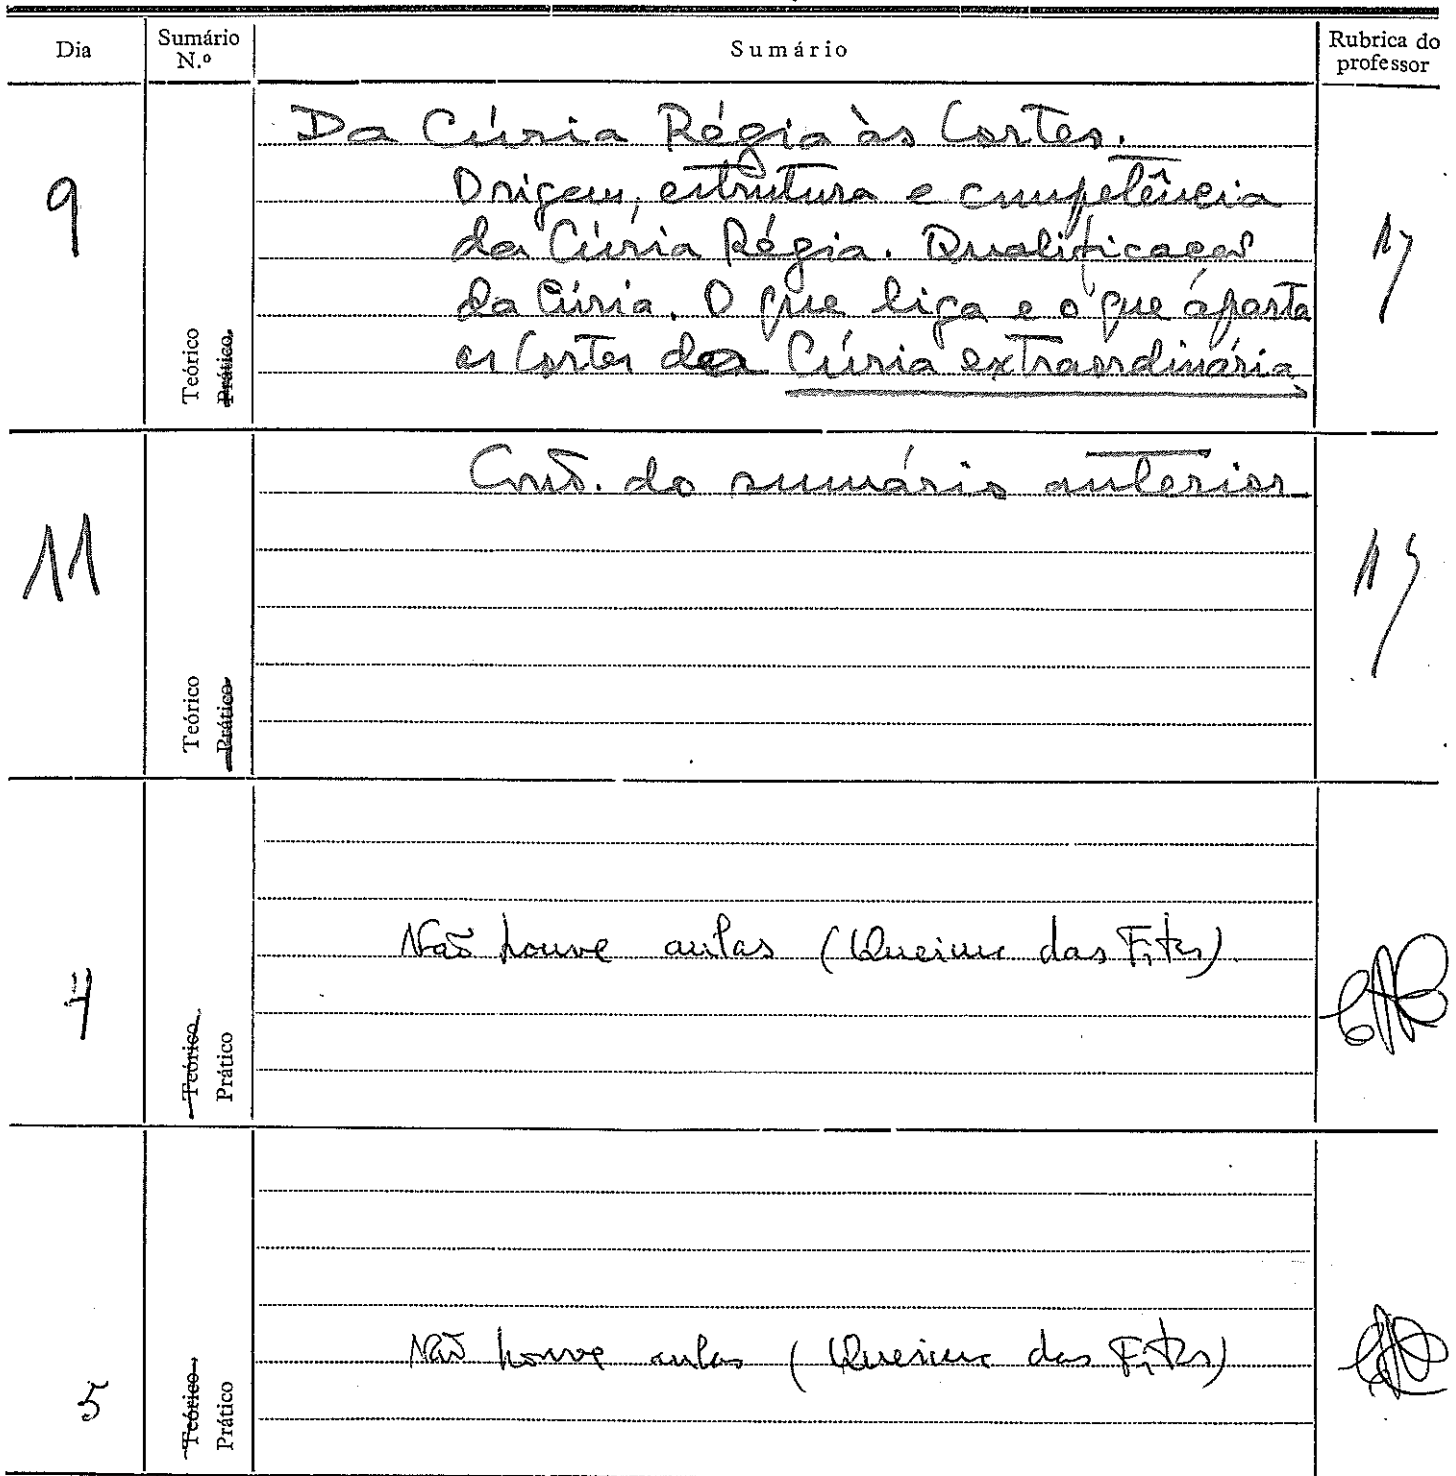 Dia
Sumário
N.º
Sumário
Rubrica do
professor
9
Teórico
Prático
Da Cúria Régia às Cortes.
Origem, estrutura e competência
da Cúria Régia. Qualificação
da Cúria. O que liga e o que aparta
as Cortes da Cúria extraordinária
11
Teórico
Prático
Cont. do sumário anterior
4
Teórico
Prático
Não houve aulas (Queima das Fitas).
5
Teórico
Prático
Não houve aulas (Queima das Fitas)